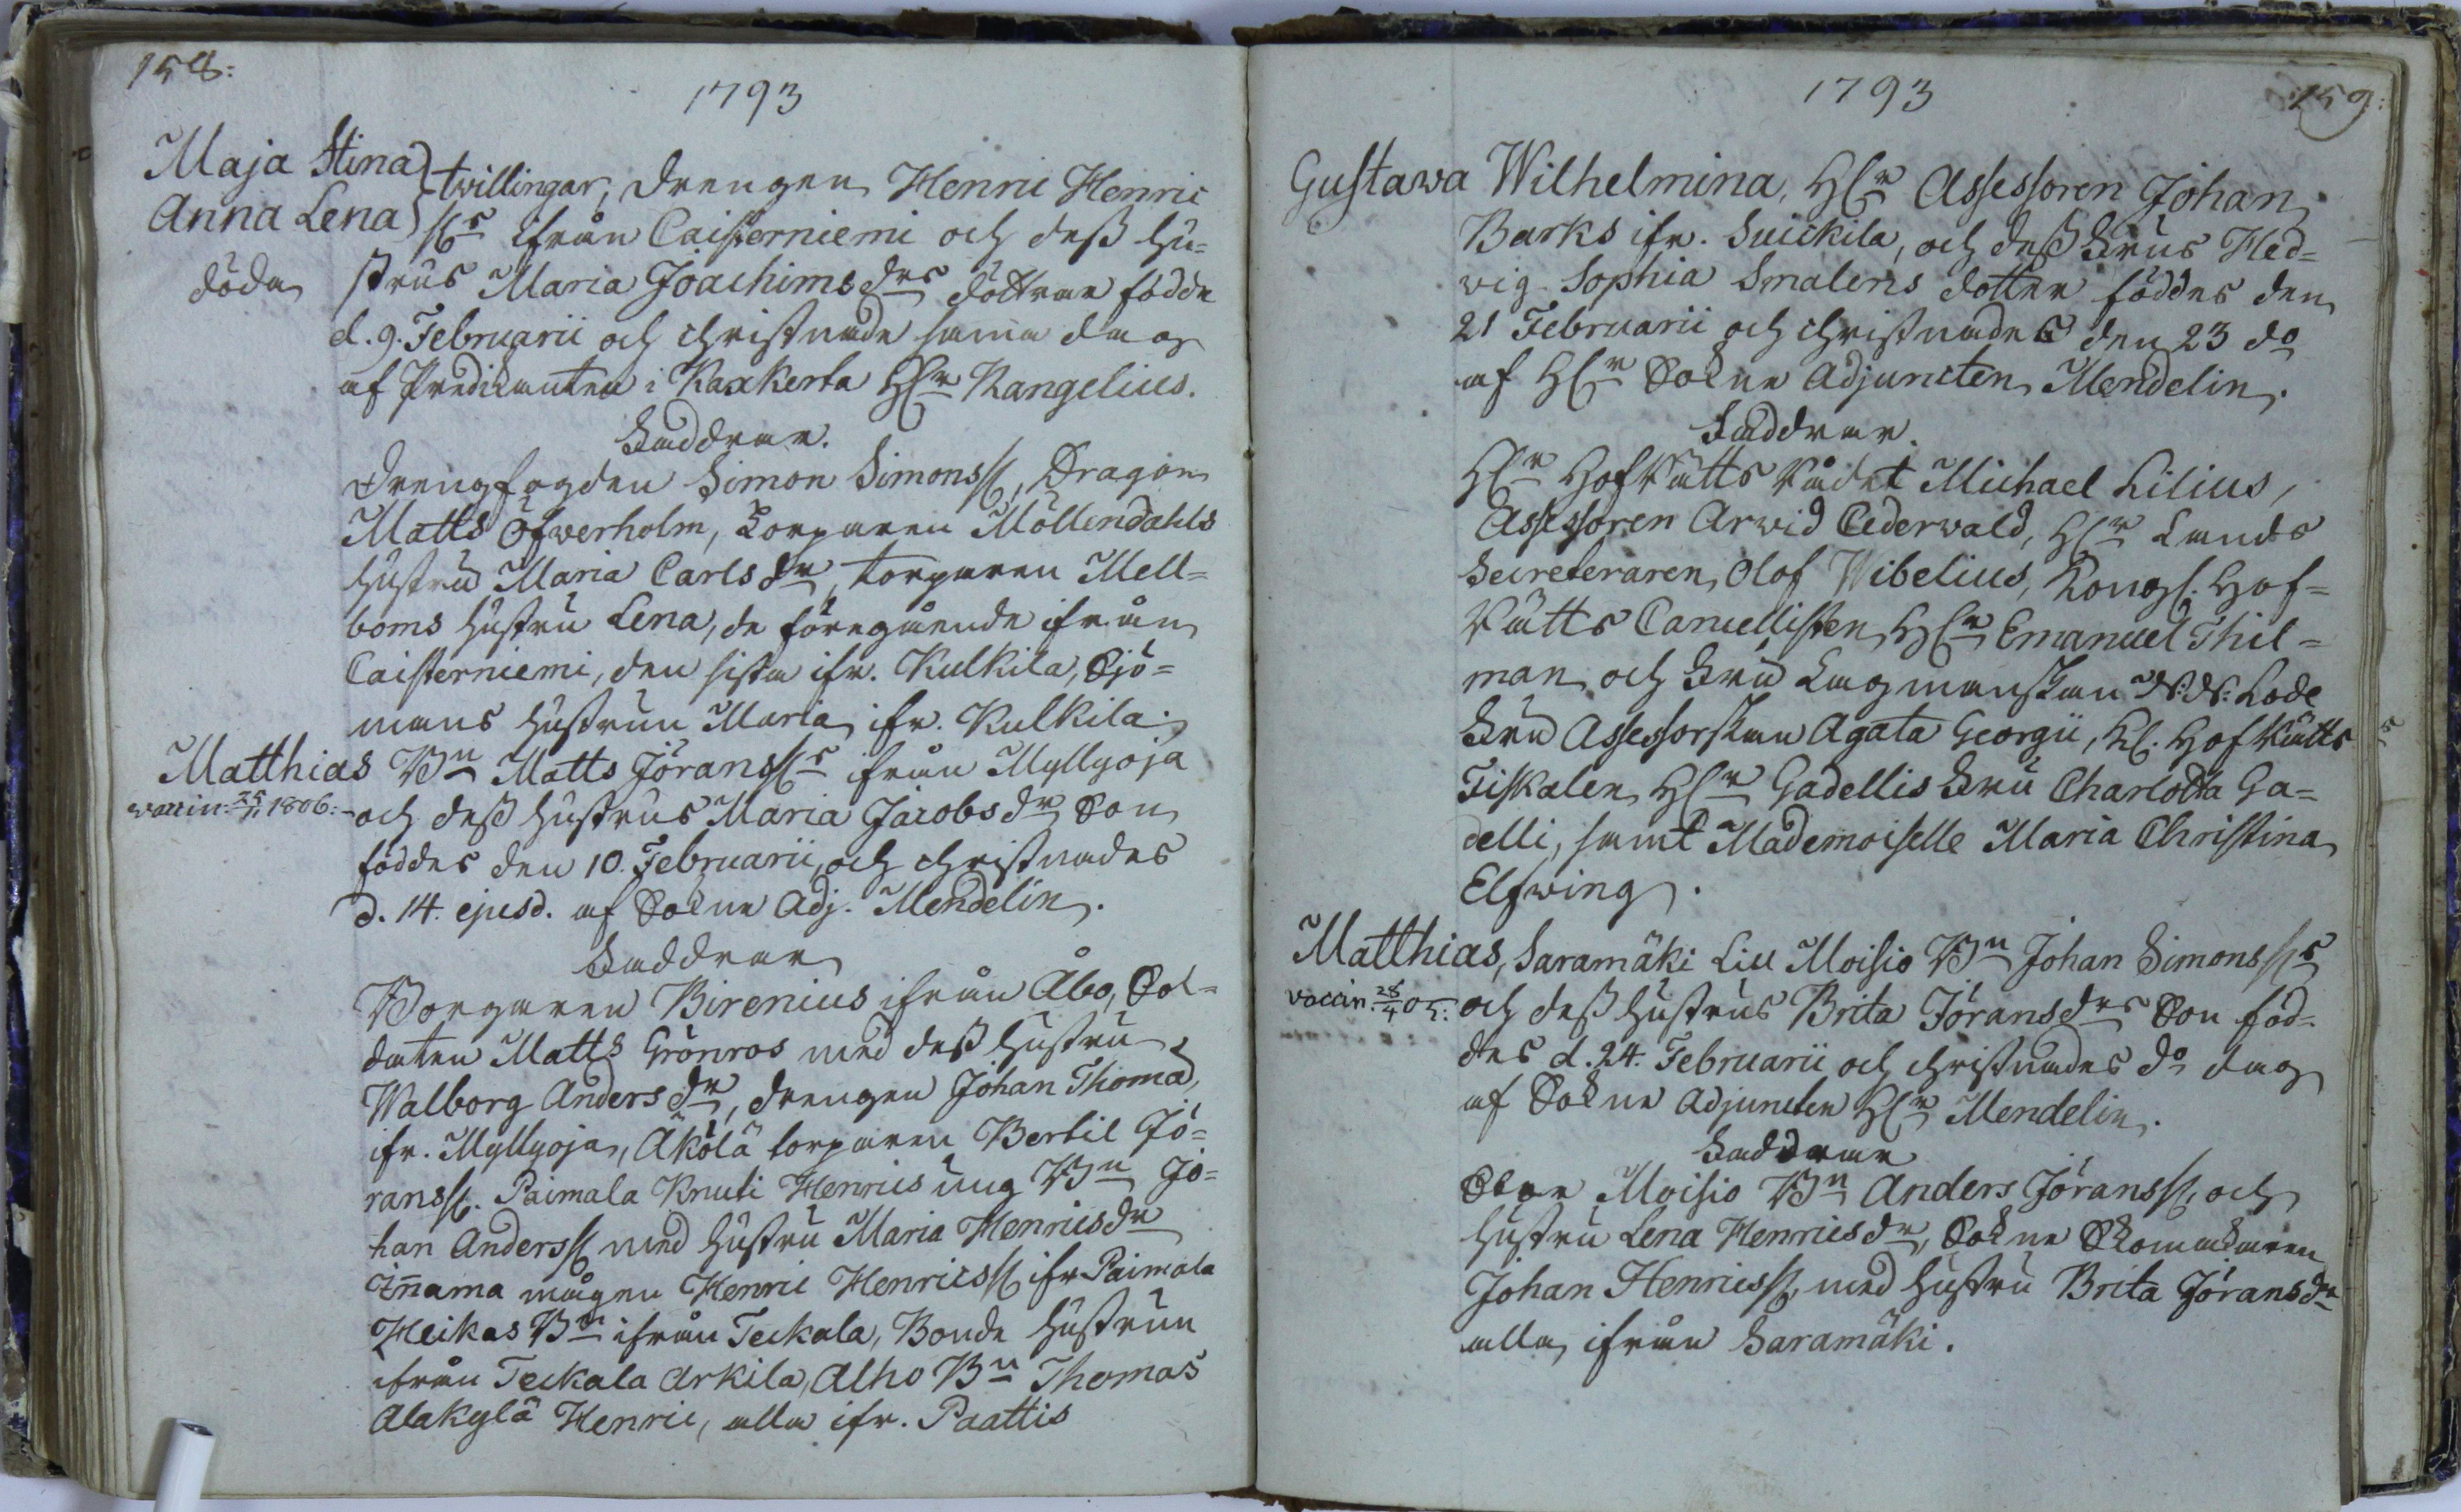 158:
1793
Maja Stina
Anna Lena
döda
twillingar, Drengen Henric Henric
ss:s ifrån Caisterniemi och dess Hu=
strus Maria Joachims drs döttrar födde
d. 9. Februarii och christnade samma dag
af Predikanten i Kaxkerta H:r Rangelius.
Faddrar.
Drengfogden Simon Simonss:, Dragon
Matts Öfwerholm, Torparen Möllendahls
hustru Maria Carls dr, torparen Mell=
boms hustru Lena, de föregående ifrån
Caisterniemi, den sista ifr. Kulkila, Sjö=
mans hustrun Maria ifr. Kulkila.
Matthias Bn Matts Jöranss:s ifrån Myllyoja
vaccin: 1806:
och dess hustrus Maria Jacobs dr Son
föddes den 10. Februarii, och christnades
d. 14. ejusd. af Sokne Adj. Mendelin.
Faddrar
Borgaren Birenius ifrån Åbo, Sol=
daten Matts Grönros med dess hustru
Walborg Anders dr, drengen Johan Thomas,
ifr. Myllyoja, Äkölä torparen Bertil Jö=
ranss:. Paimala Knuti Henrics ung Bn Jo=
han Anderss: med hustru Maria Henrics dr
Innama mågen Henric Henricss: ifr Paimala
Heikas Bn ifrån Teckala, Bonde hustrun
ifrån Teckala Arkila, Alho Bn Thomas
Alakylä Henric, alla ifr. Paattis
1793
159:
Gustawa Wilhelmina, H:r Assessoren Johan
Barks ifr. Suickila, och dess Frus Hed=
wig Sophia Smalens dotter föddes den
21 Februarii och christnades den 23 do
af H:r Sokne Adjuncten Mendelin.
Faddrar.
H:r HofRätts Rådet Michael Lilius,
Assessoren Arwid Cederwald, H:r Lands
Secreteraren Olof Wibelius, Kongl. Hof=
Rätts Cancellisten H:r Emanuel Thil=
man och Fru Lagmanskan N: N: Lode
Fru Assessorskan Agata Georgii, Kl. HofRätts
Fiskalen H:r Gadellis Fru Charlotta Ga=
delli, samt Mademoiselle Maria Christina
Elfwing.
Matthias, Saramäki Lill Moisio Bn Johan Simonss:s
vaccin. 28/4 05:
och dess hustrus Brita Jörans drs Son föd=
des d. 24. Februarii och christnades do dag
af Sokne Adjuncten H:r Mendelin.
Faddrar
Stor Moisio Bn Anders Jöranss: och
hustru Lena Henrics dr, Sokne Skomakaren
Johan Henricss: med hustru Brita Jörans dr
alla ifrån Saramäki.